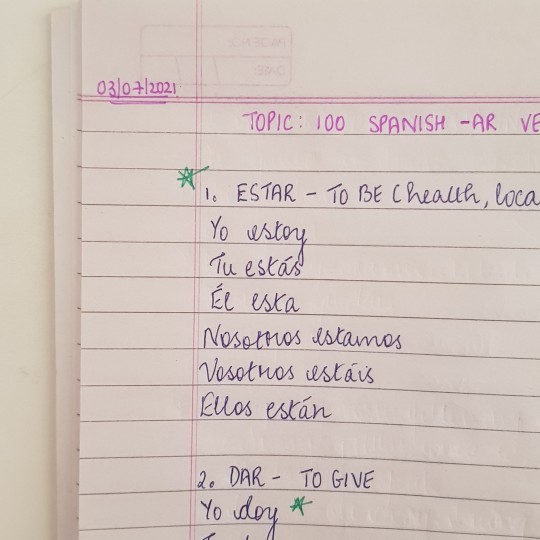 03/07/2021
TOPIC: 100 SPANISH -AR VE
1. ESTAR - TO BE (health, loca
Yo estoy
Tu estás
Él esta
Nosotros estamos
Vosotros estáis
Ellos están
2. DAR - TO GIVE
Yo doy